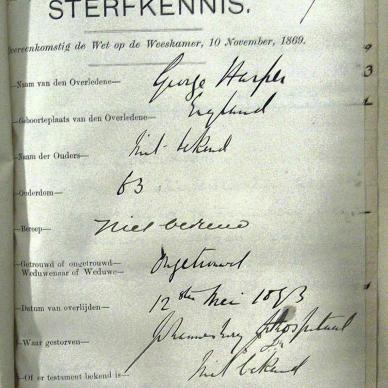 STERFKENNIS.
Overeenkomstig de Wet op de Weeskamer, 10 November, 1869.
—Naam van den Overledene— George Harper
—Geboorteplaats van den Overledene— England
—Naam der Ouders— Niet bekend
—Ouderdom— 63
—Beroep— Niet bekend
—Getrouwd of ongetrouwd— Weduwenaar of Weduwe— Ongetrouwd
—Datum van overlijden— 12den Mei 1893
—Waar gestorven— Johannesburg Hospitaal
—Of er testament bekend is— Niet bekend